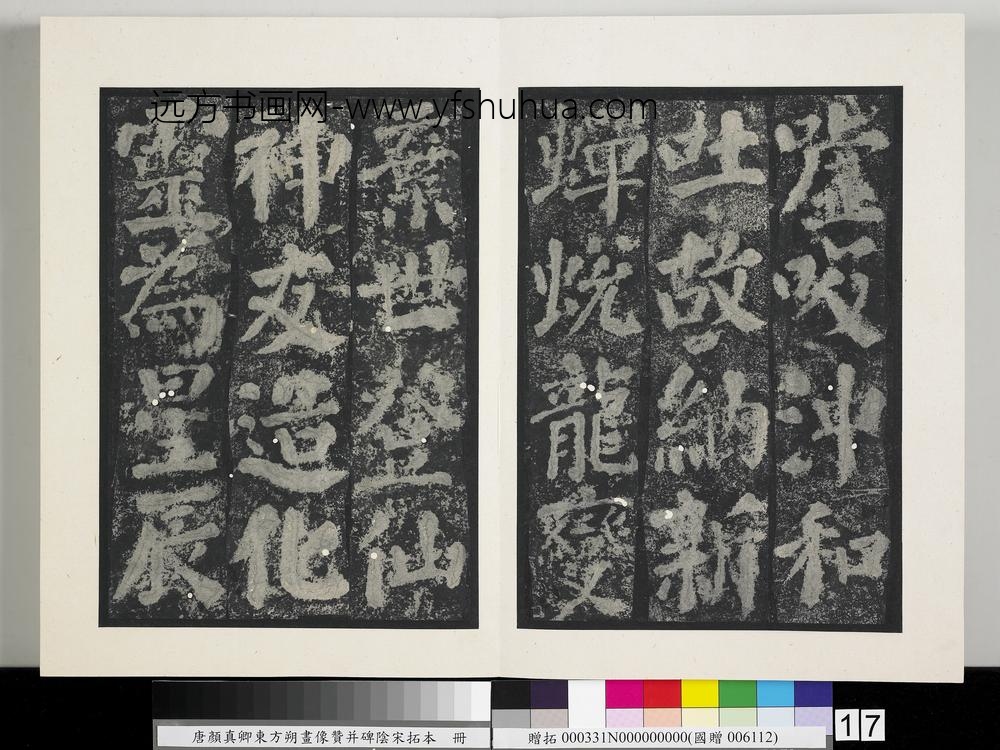 远方书画网-www.yfshuhua.com
噓吸沖和
吐故納新
蟬蛻龍變
棄世登仙
神友造化
靈為星辰
唐顏真卿東方朔畫像贊并碑陰宋拓本 冊
贈拓 000331N000000000(國贈 006112)
17